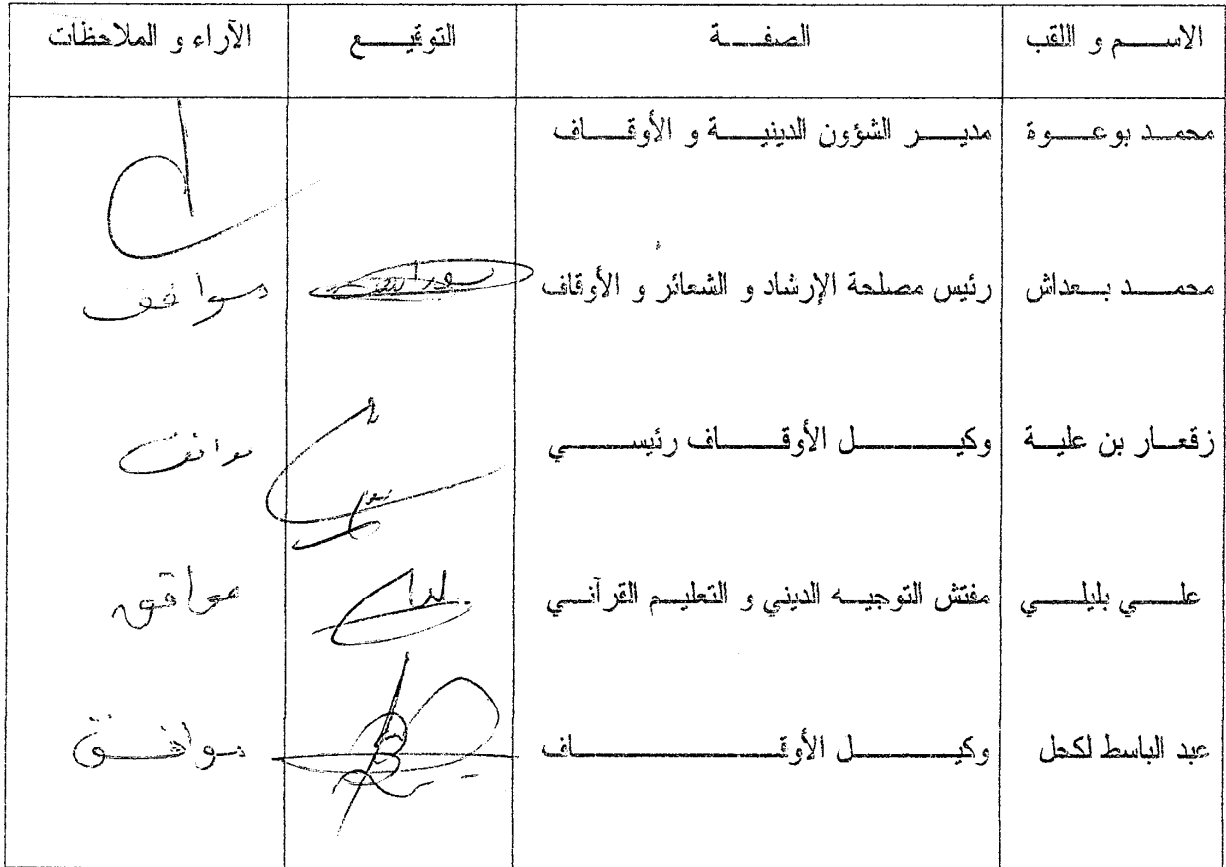 الاسم و اللقب الصفة التوقيع الآراء و الملاحظات
محمد بوعوة مدير الشؤون الدينية و الأوقاف
محمد بعداش رئيس مصلحة الإرشاد و الشعائر و الأوقاف موافق
زقعار بن علية وكيل الأوقاف رئيسي موافق
علي بليلي مفتش التوجيه الديني و التعليم القرآني موافق
عبد الباسط لكحل وكيل الأوقاف موافق